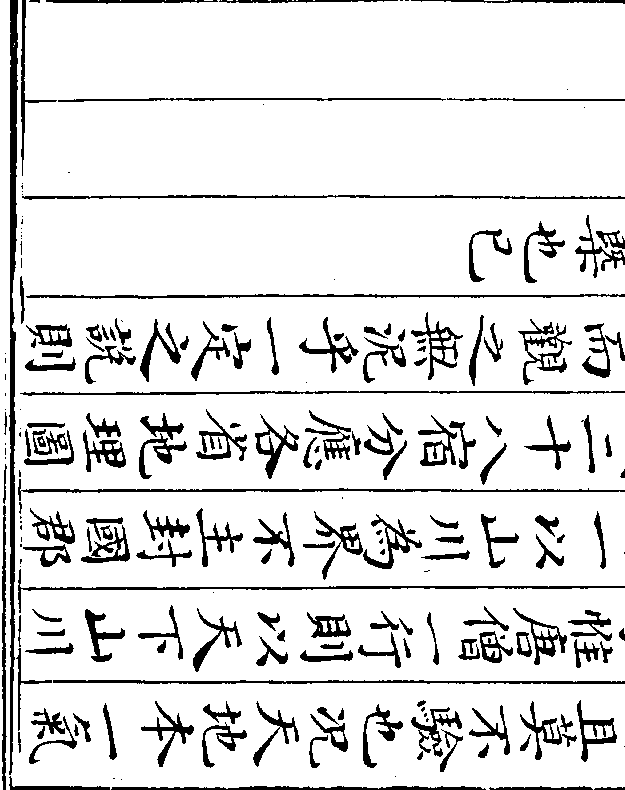 且莫不驗也況天地本一氣
惟唐僧一行則以天下山川
一以山川為界不主封國郡
二十八宿分應各省地理圖
而觀之無泥乎一定之說則
槩也已